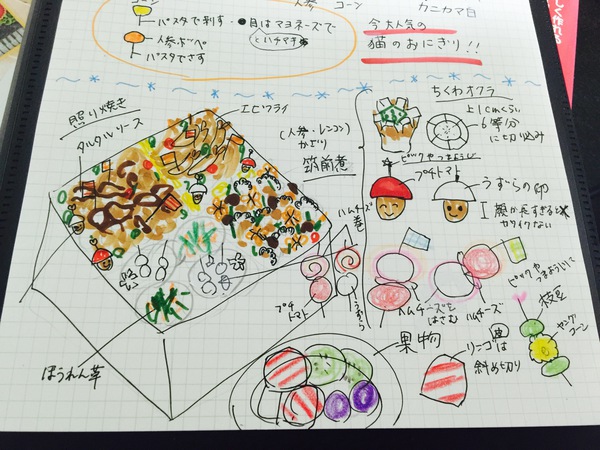 人参
コーン
カニカマ目
パスタで刺す
●目はマヨネーズで
とハチマキ
人参ホッペ
パスタでさす
今大人気の
猫のおにぎり!!
照り焼き
タルタルソース
エビフライ
(人参・レンコン)
かざり
筑前煮
ちくわオクラ
上1cmくらい
6等分
に切り込み
ピックやつまようじ
プチトマト
うずらの卵
顔が長すぎると
カワイクない
ハムチーズ
巻
プチ
トマト
うずら
ハムチーズを
はさむ
ハムチーズ
ピックや
つまようじに
枝豆
ヤング
コーン
ほうれん草
果物
リンゴ皮は
斜め切り